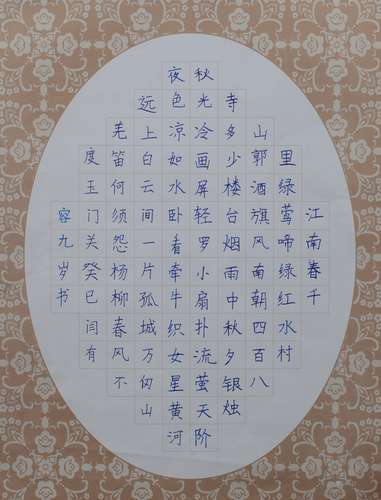 江南春千
里绿莺啼绿红水村
山郭酒旗风南朝四百八
寺多少楼台烟雨中秋夕银烛
秋光冷画屏轻罗小扇扑流萤天阶
夜色凉如水卧看牵牛织女星黄河
远上白云间一片孤城万仞山
羌笛何须怨杨柳春风不
度玉门关癸巳闰有
容九岁书